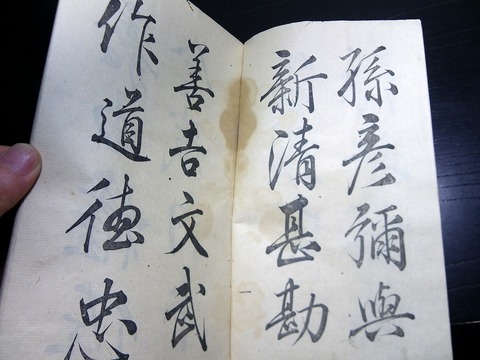 孫彦彌與
新清甚勘
善吉文武
作道徳忠